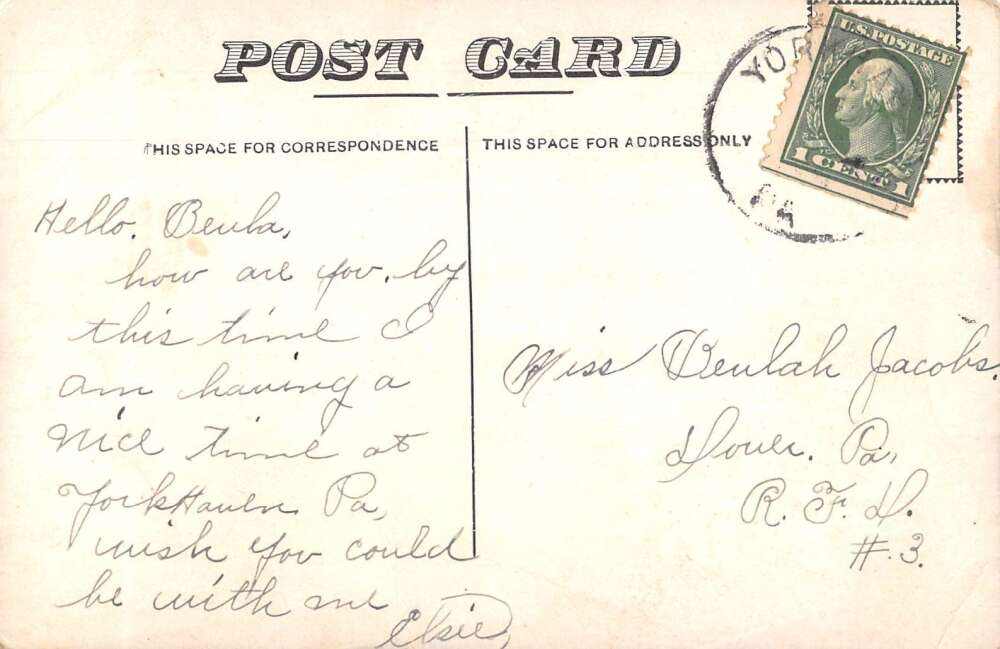 POST CARD
THIS SPACE FOR CORRESPONDENCE
THIS SPACE FOR ADDRESS ONLY
YOR
PA
U.S. POSTAGE
1 CENT 1
Hello. Beula,
how are you. by
this time I
am having a
nice time at
York Haven Pa,
wish you could
be with me
Elsie,
Miss Beulah Jacobs.
Dover. Pa,
R. F. D.
#.3.